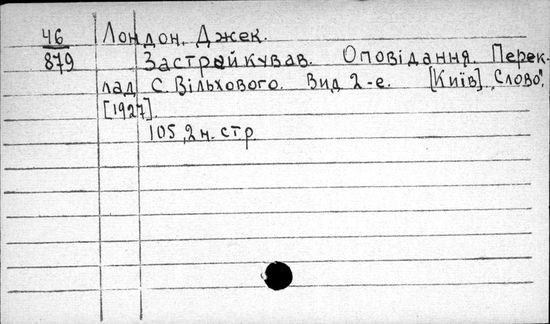 46 Лондон, Джек.
879 Застрайкував. Оповідання. Перек-
лад С. Вільхового. Вид 2-е. [Київ], „Слово",
[1927].
105, 2 н. стр.